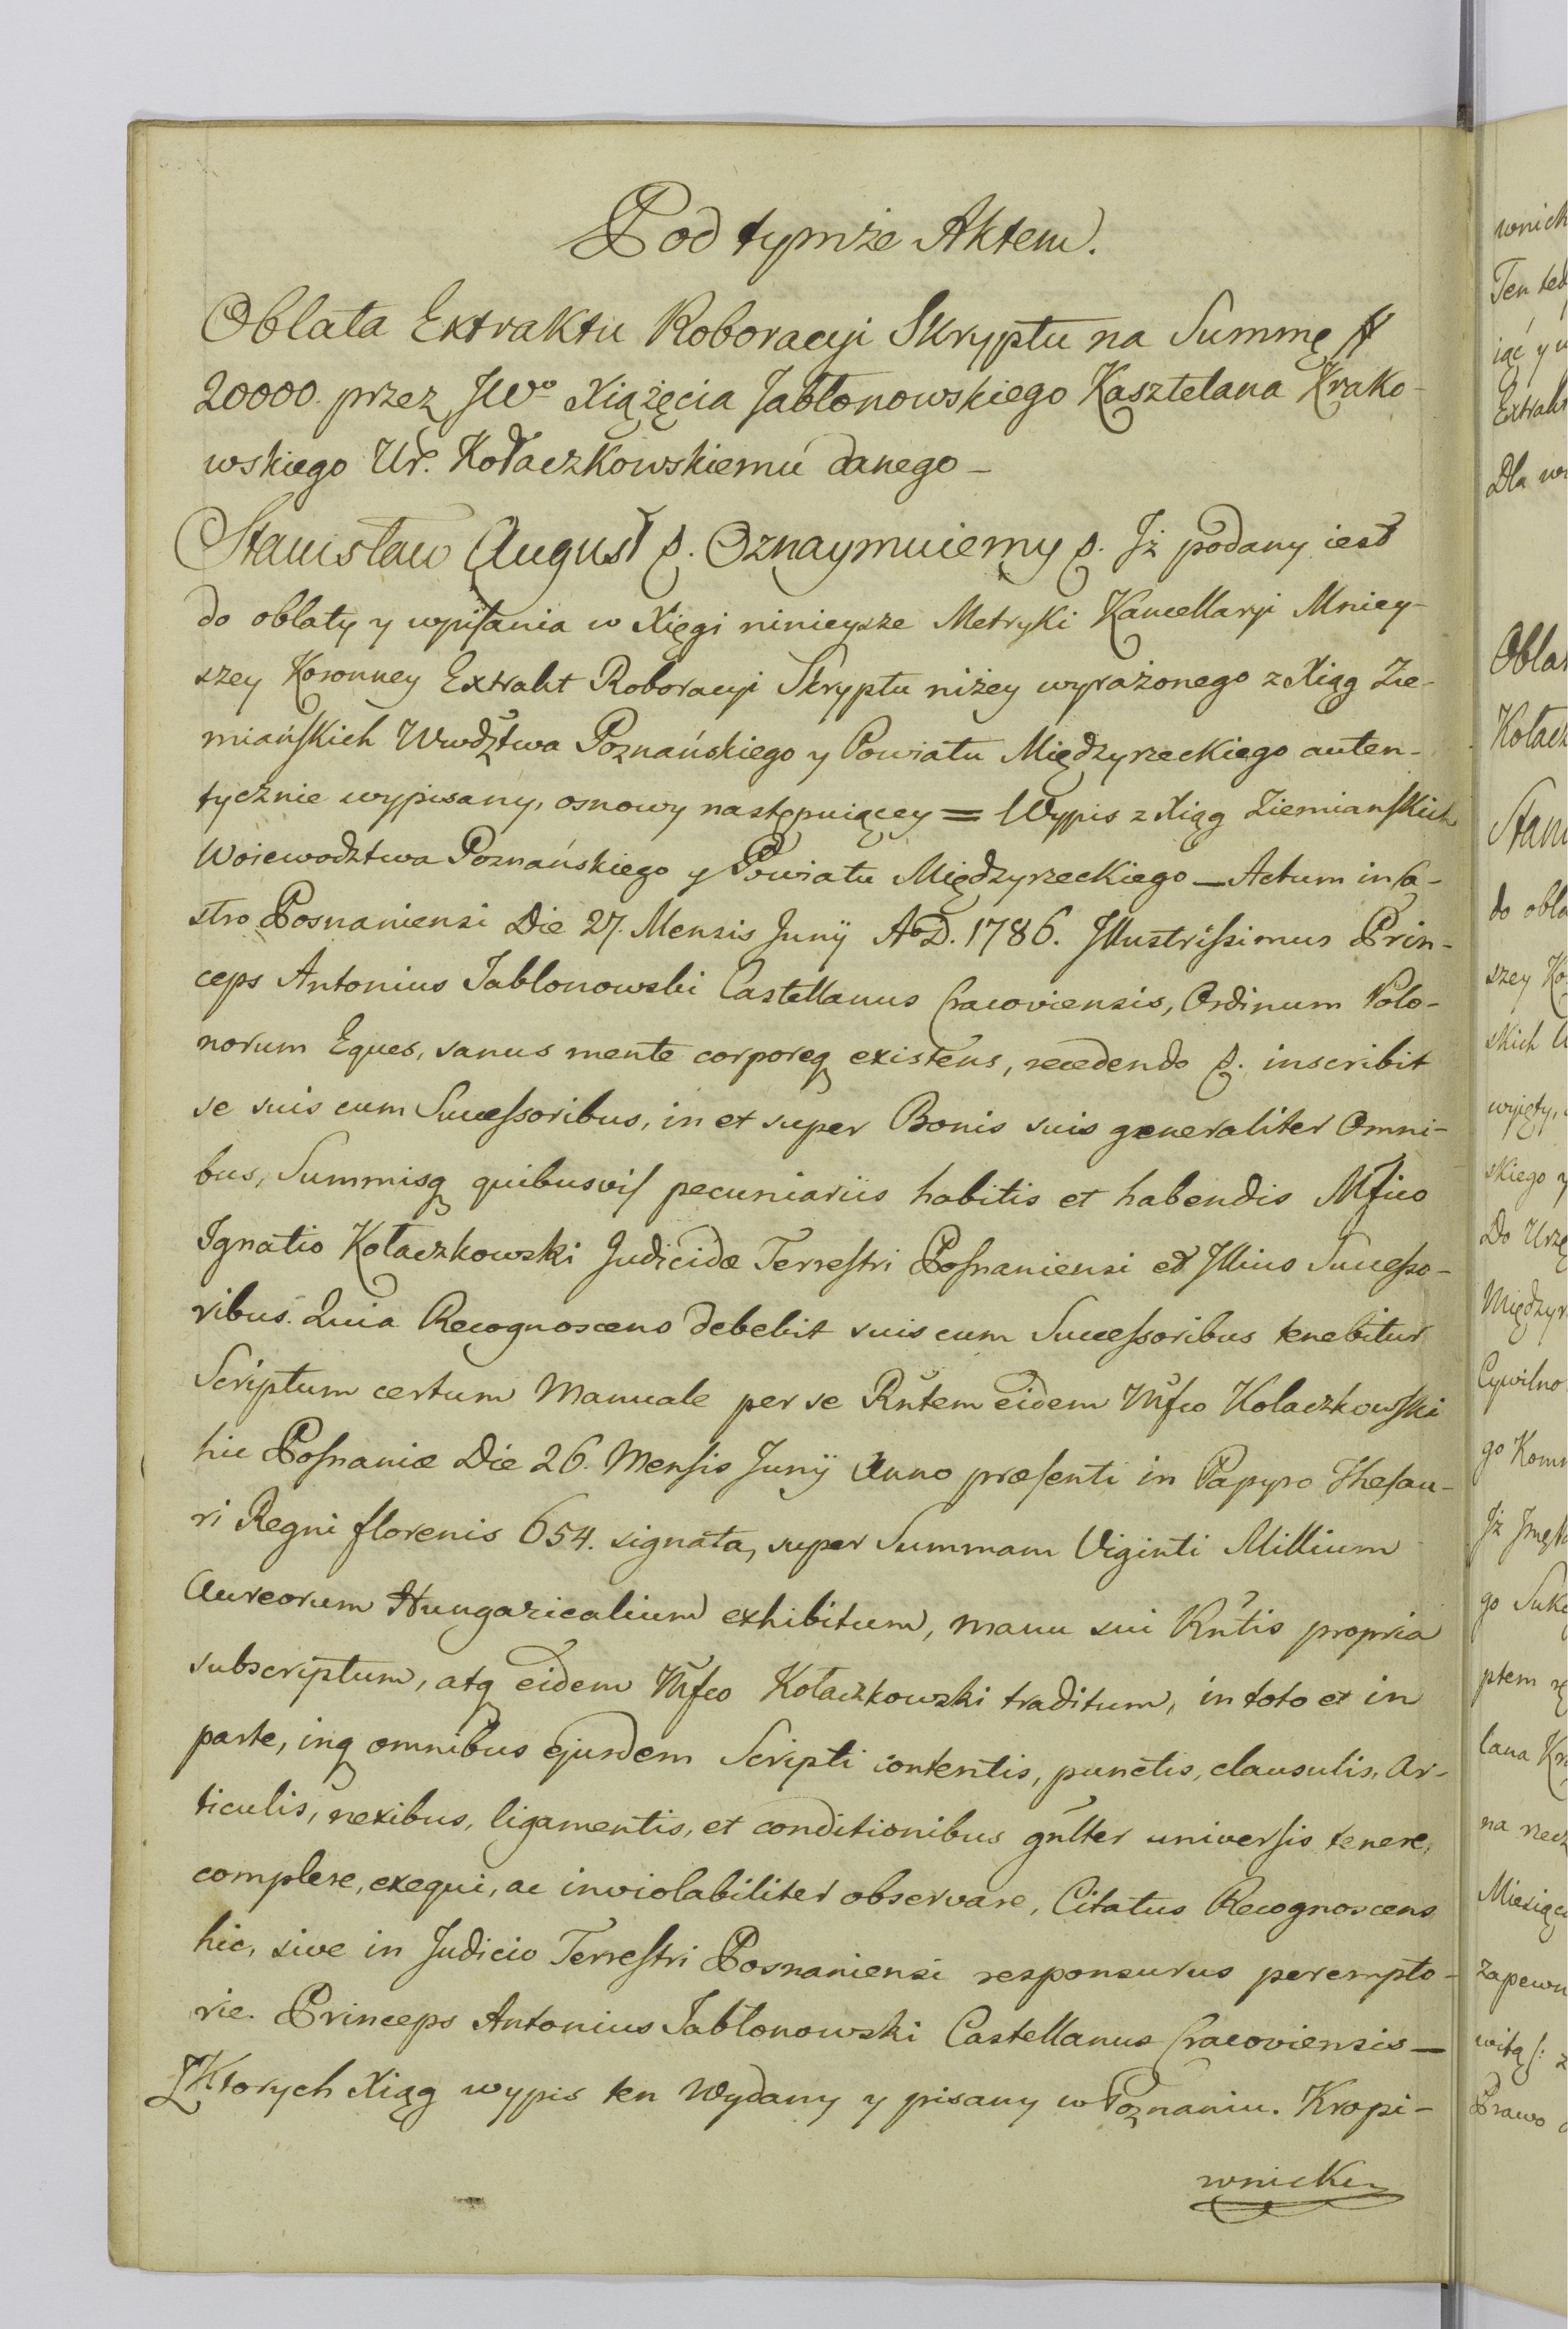 Pod tymże Aktem.
Oblata Extraktu Roboracyi Skryptu na Summę #
20000. przez JWo Xiążęcia Jabłonowskiego Kasztelana Krako-
wskiego Ur. Kołaczkowskiemu danego –
Stanisław August &. Oznaymuiemy &. Iż podany iest
do oblaty y wpisania w Xięgi ninieysze Metryki Kancellaryi Mniey-
szey Koronney Extrakt Roboracyi Skryptu niżey wyrażonego z Xiąg Zie-
miańskich Wwdztwa Poznańskiego y Powiatu Międzyrzeckiego auten-
tycznie wypisany, osnowy następuiącey = Wypis z Xiąg Ziemianskich
Woiewodztwa Poznańskiego y Powiatu Międzyrzeckiego — Actum in Ca-
stro Posnaniensi Die 27. Mensis Junÿ AoD. 1786. Illustrissimus Prin-
ceps Antonius Jablonowski Castellanus Cracoviensis, Ordinum Polo-
norum Eques, sanus mente corporeq existens, recedendo &. inscribit
se suis cum Successoribus, in et super Bonis suis generaliter Omni-
bus, Summisq quibusvis pecuniariis habitis et habendis Mfico
Ignatio Kołaczkowski Judicidæ Terrestri Posnaniensi et Illius Successo-
ribus. Quia Recognoscens debebit suis cum Successoribus tenebitur
Scriptum certum Manuale per se Rñtem eidem Mfco Kolaczkowski
hic Posnaniæ Die 26. Mensis Junÿ Anno præsenti in Papyro Thesau-
ri Regni florenis 654. signata, super Summam Viginti Millium
Aureorum Hungaricalium exhibitum, manu sui Rñtis propria
subscriptum, atq eidem Mfco Kołaczkowski traditum, in toto et in
parte, inq omnibus ejusdem Scripti contentis, punctis, clausulis, Ar-
ticulis, nexibus, ligamentis, et conditionibus gñlter universis tenere,
complere, exequi, ac inviolabiliter observare, Citatus Recognoscens
hic, sive in Judicio Terrestri Posnaniensi responsurus perempto-
rie. Princeps Antonius Jabłonowski Castellanus Cracoviensis —
Z Ktorych Xiąg wypis ten Wydany y pisany w Poznaniu. Kropi-
wnicki